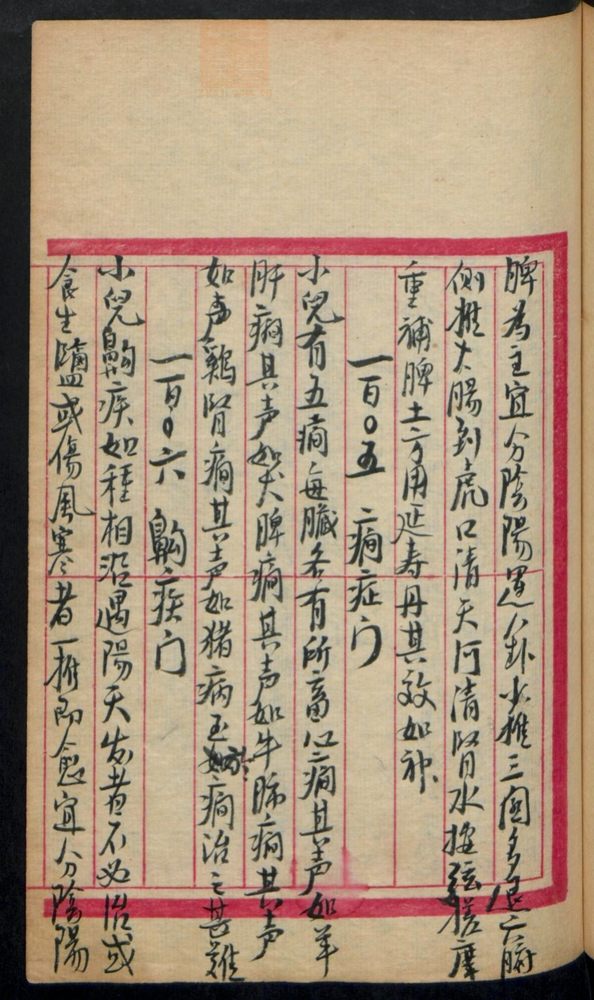 脾為主宜分陰陽運八卦少推三関多退六腑
側推大腸到虎口清天河清腎水按弦搓摩
重補脾土方用延寿丹其效如神
一百〇五　癇症门
小兒有五癇每臟各有所畜心癇其声如羊
肝癇其声如犬脾癇其声如牛肺癇其声
如声鷄腎癇其声如猪病至於癇治之甚難
一百〇六　齁疾门
小兒齁疾如種相沿遇陽天发者不必治或
食生鹽或傷風寒者一推即愈宜分陰陽